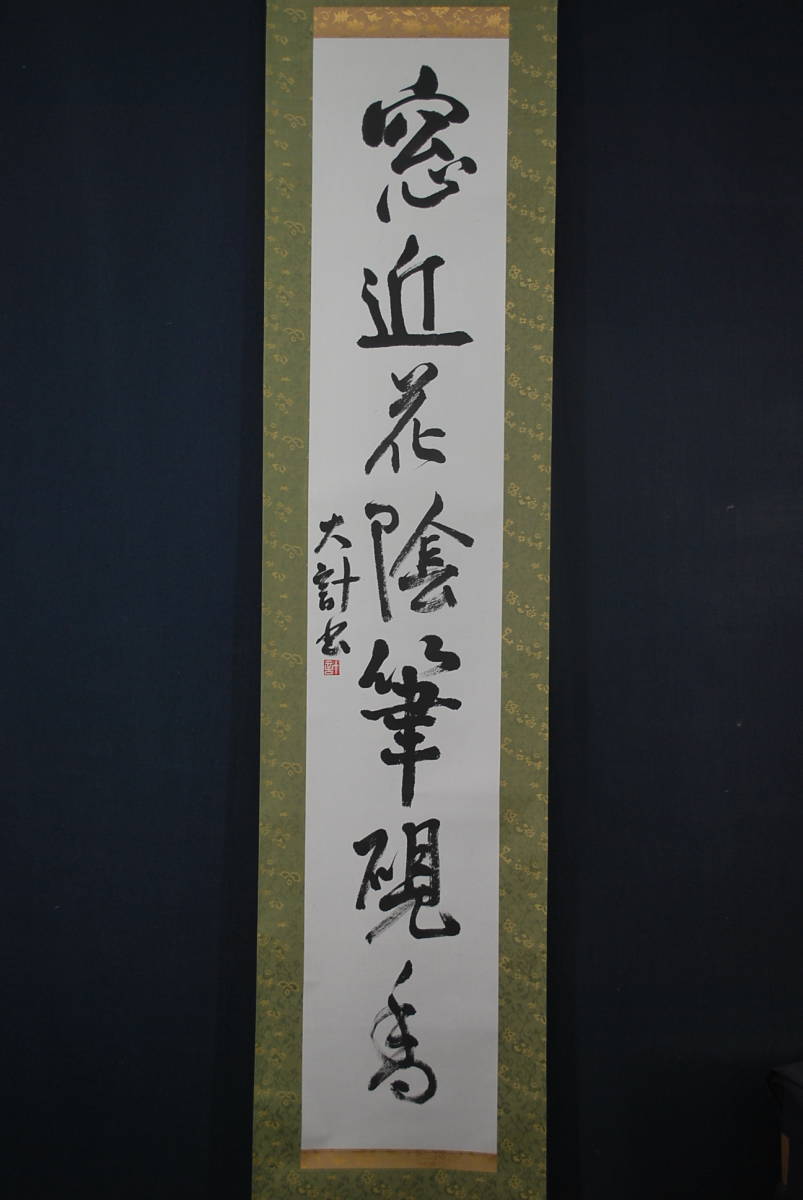 窓近花陰筆硯香
大計書
計